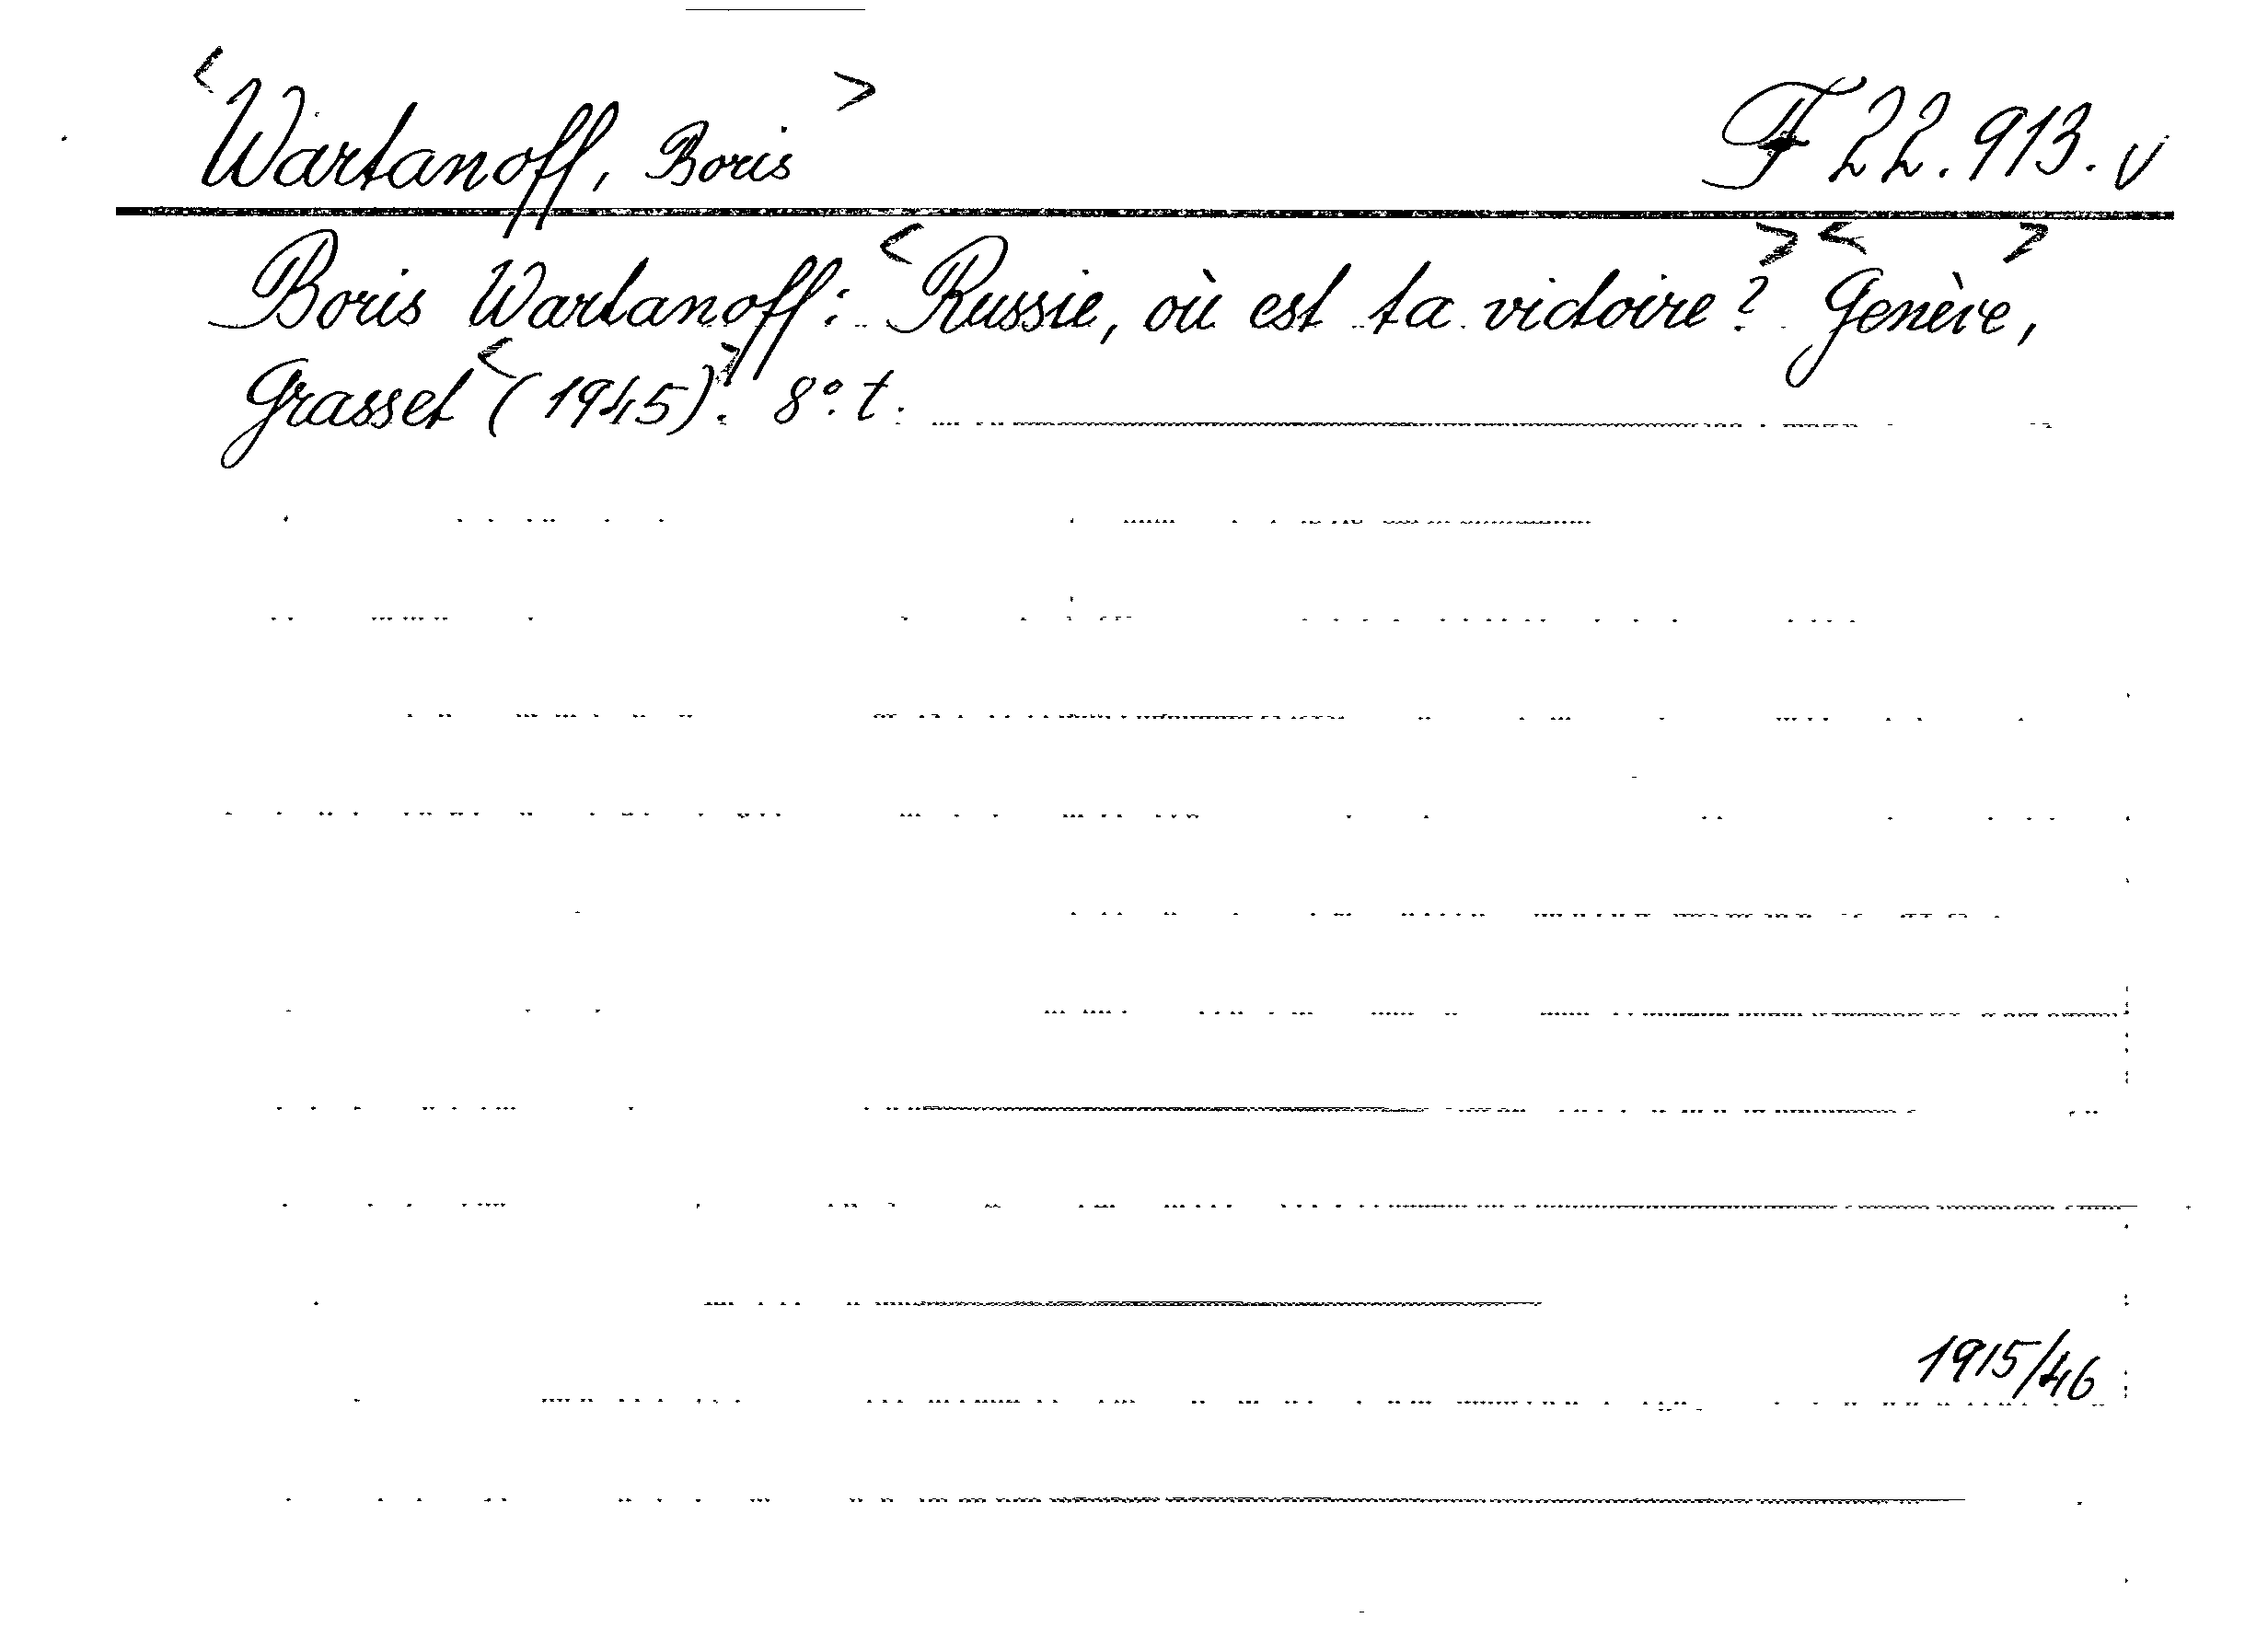 <Wartanoff, Boris> F 22.913. v
Boris Wartanoff: <Russie, où est ta victoire?> <Genève,>
Grasset <(1945)>. 8°. t.
1915/46